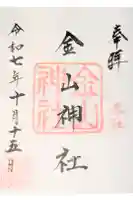 奉拝
金山神社
金山神社
令和七年十月十五日